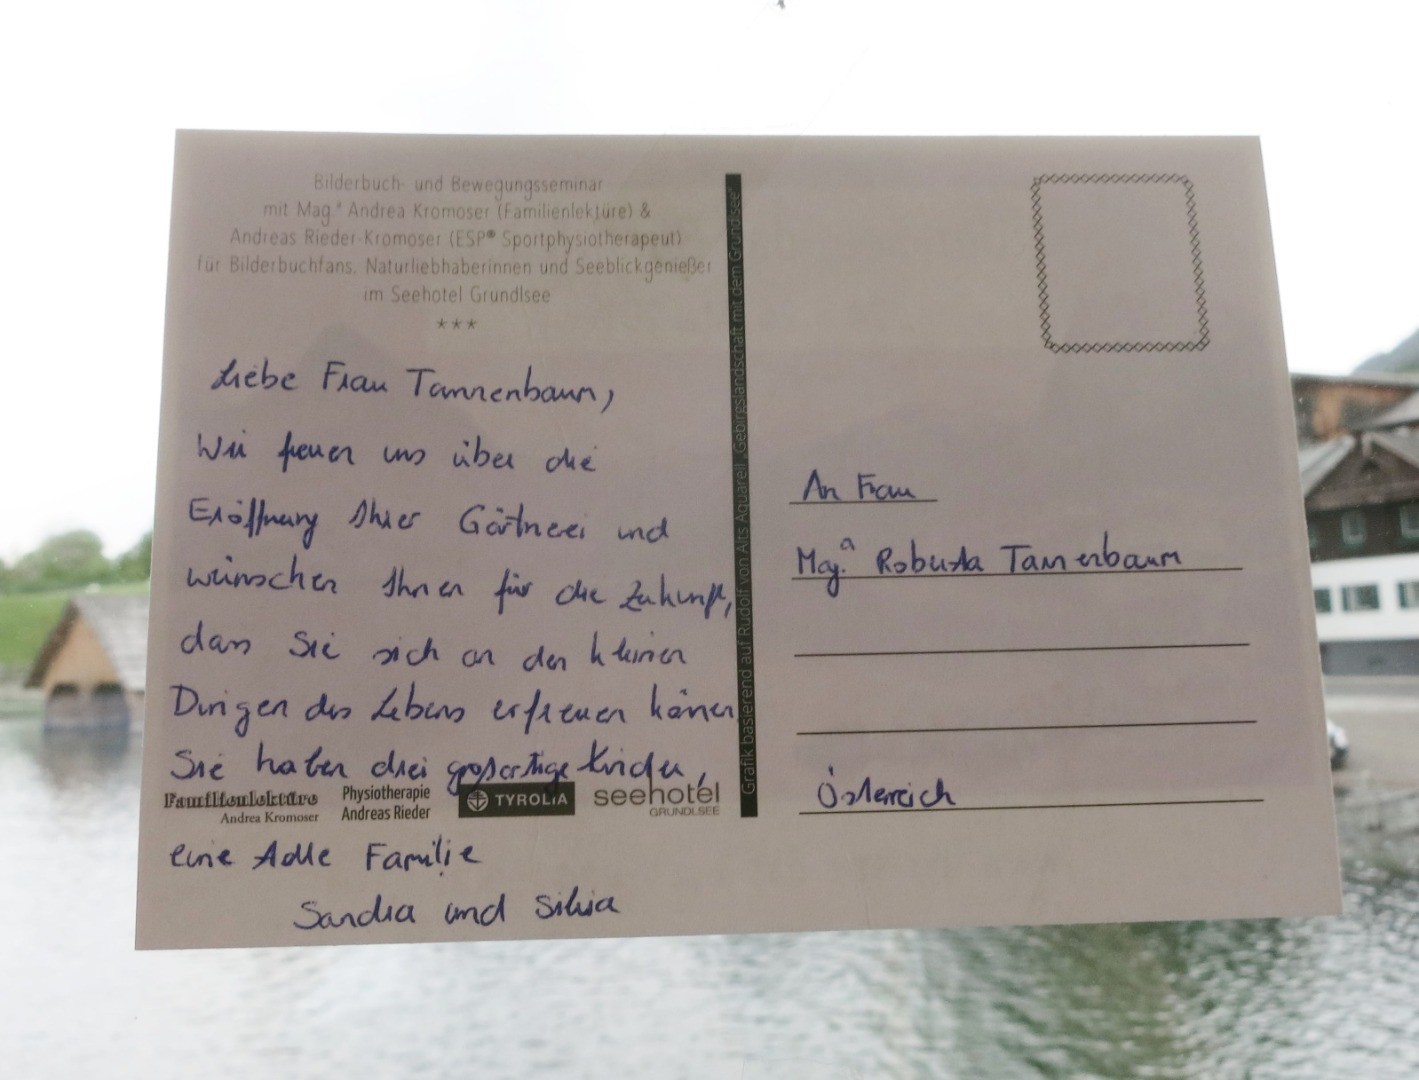 Bilderbuch- und Bewegungsseminar
mit Mag.ª Andrea Kromoser (Familienlektüre) &
Andreas Rieder-Kromoser (ESP® Sportphysiotherapeut)
für Bilderbuchfans, Naturliebhaberinnen und Seeblickgenießer
im Seehotel Grundlsee
***
Liebe Frau Tannenbaum,
Wir freuen uns über die
Eröffnung Ihrer Gärtnerei und
wünschen Ihnen für die Zukunft,
dass Sie sich an den kleinen
Dingen des Lebens erfreuen können
Sie haben drei großartige Kinder,
Familienlektüre
Andrea Kromoser
Physiotherapie
Andreas Rieder
TYROLIA
seehotel
GRUNDLSEE
eine tolle Familie
Sandra und Silvia
Grafik basierend auf Rudolf von Alts Aquarell „Gebirgslandschaft mit dem Grundlsee"
An Frau
Mag.ª Robusta Tannenbaum
Österreich